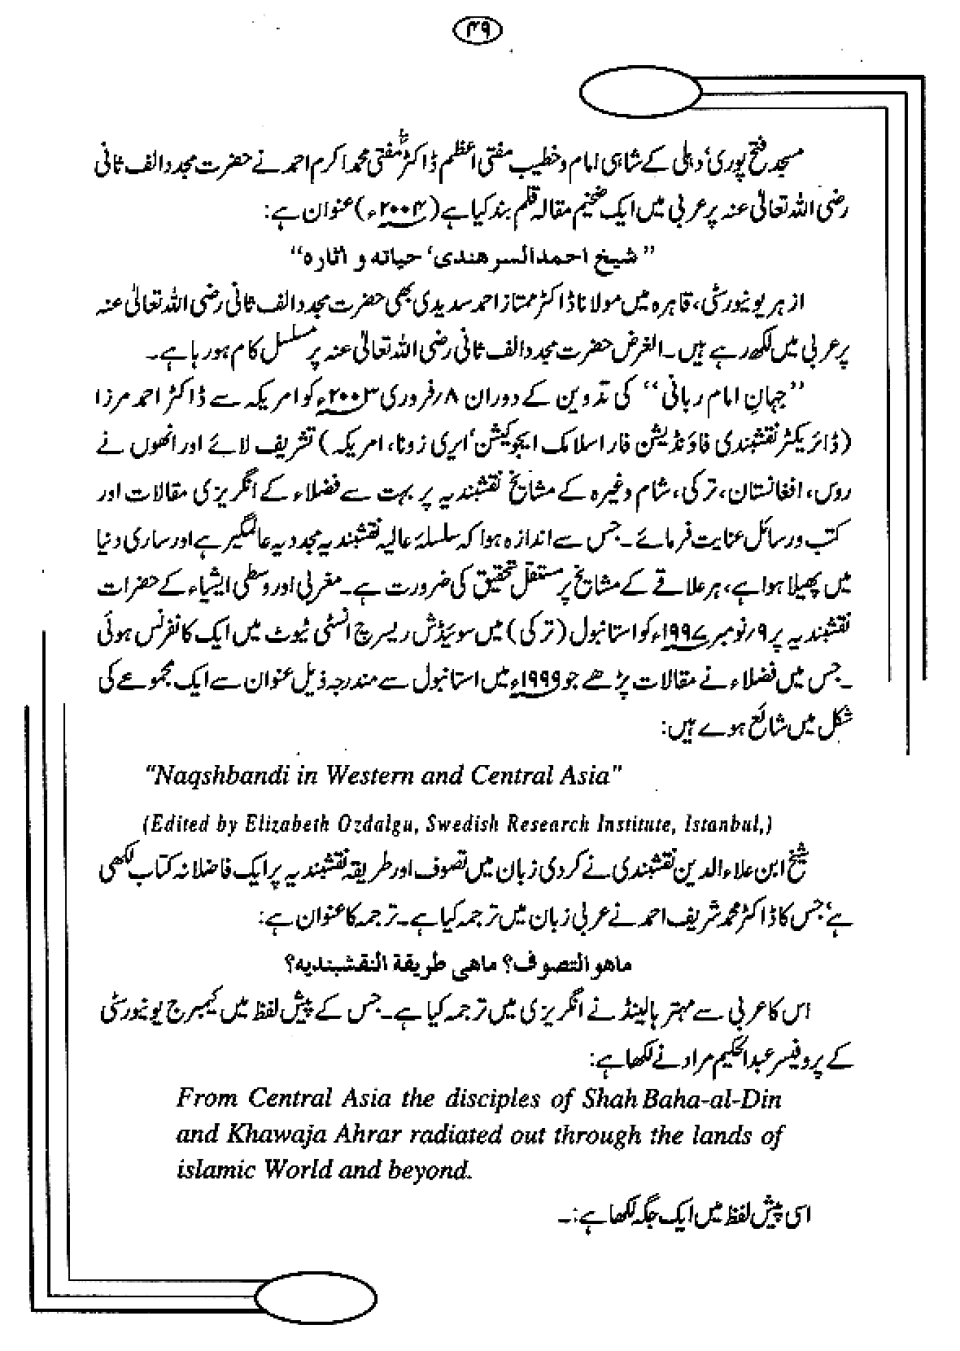 ۴۹
مسجد فتح پوری، دہلی کے شاہی امام و خطیب مفتی اعظم ڈاکٹر مفتی محمد اکرم احمد نے حضرت مجدد الف ثانی
رضی اللہ تعالیٰ عنہ پر عربی میں ایک ضخیم مقالہ قلم بند کیا ہے (۲۰۰۴ء) عنوان ہے:
”شیخ احمد السرھندی، حیاتہ و آثارہ“
ازہر یونیورسٹی، قاہرہ میں مولانا ڈاکٹر ممتاز احمد سدیدی بھی حضرت مجدد الف ثانی رضی اللہ تعالیٰ عنہ
پر عربی میں لکھ رہے ہیں۔ الغرض حضرت مجدد الف ثانی رضی اللہ تعالیٰ عنہ پر مسلسل کام ہو رہا ہے۔
”جہانِ امام ربانی“ کی تدوین کے دوران ۸؍فروری ۲۰۰۳ء کو امریکہ سے ڈاکٹر احمد مرزا
(ڈائریکٹر نقشبندی فاؤنڈیشن فار اسلامک ایجوکیشن، ایری زونا، امریکہ) تشریف لائے اور انھوں نے
روس، افغانستان، ترکی، شام وغیرہ کے مشایخ نقشبندیہ پر بہت سے فضلاء کے انگریزی مقالات اور
کتب و رسائل عنایت فرمائے۔ جس سے اندازہ ہوا کہ سلسلۂ عالیہ نقشبندیہ مجددیہ عالمگیر ہے اور ساری دنیا
میں پھیلا ہوا ہے، ہر علاقے کے مشایخ پر مستقل تحقیق کی ضرورت ہے۔ مغربی اور وسطی ایشیاء کے حضرات
نقشبندیہ پر ۹؍نومبر ۱۹۹۷ء کو استانبول (ترکی) میں سویڈش ریسرچ انسٹی ٹیوٹ میں ایک کانفرنس ہوئی
۔ جس میں فضلاء نے مقالات پڑھے جو ۱۹۹۹ء میں استانبول سے مندرجہ ذیل عنوان سے ایک مجموعے کی
شکل میں شائع ہوے ہیں:
"Naqshbandi in Western and Central Asia"
(Edited by Elizabeth Ozdalgu, Swedish Research Institute, Istanbul,)
شیخ ابن علاءالدین نقشبندی نے کردی زبان میں تصوف اور طریقہ نقشبندیہ پر ایک فاضلانہ کتاب لکھی
ہے، جس کا ڈاکٹر محمد شریف احمد نے عربی زبان میں ترجمہ کیا ہے۔ ترجمہ کا عنوان ہے:
ماھو التصوف؟ ماھی طریقة النقشبندیہ؟
اس کا عربی سے مہتر ہالینڈ نے انگریزی میں ترجمہ کیا ہے۔ جس کے پیش لفظ میں کیمبرج یونیورسٹی
کے پروفیسر عبدالحکیم مراد نے لکھا ہے:
From Central Asia the disciples of Shah Baha-al-Din
and Khawaja Ahrar radiated out through the lands of
islamic World and beyond.
اسی پیش لفظ میں ایک جگہ لکھا ہے:۔